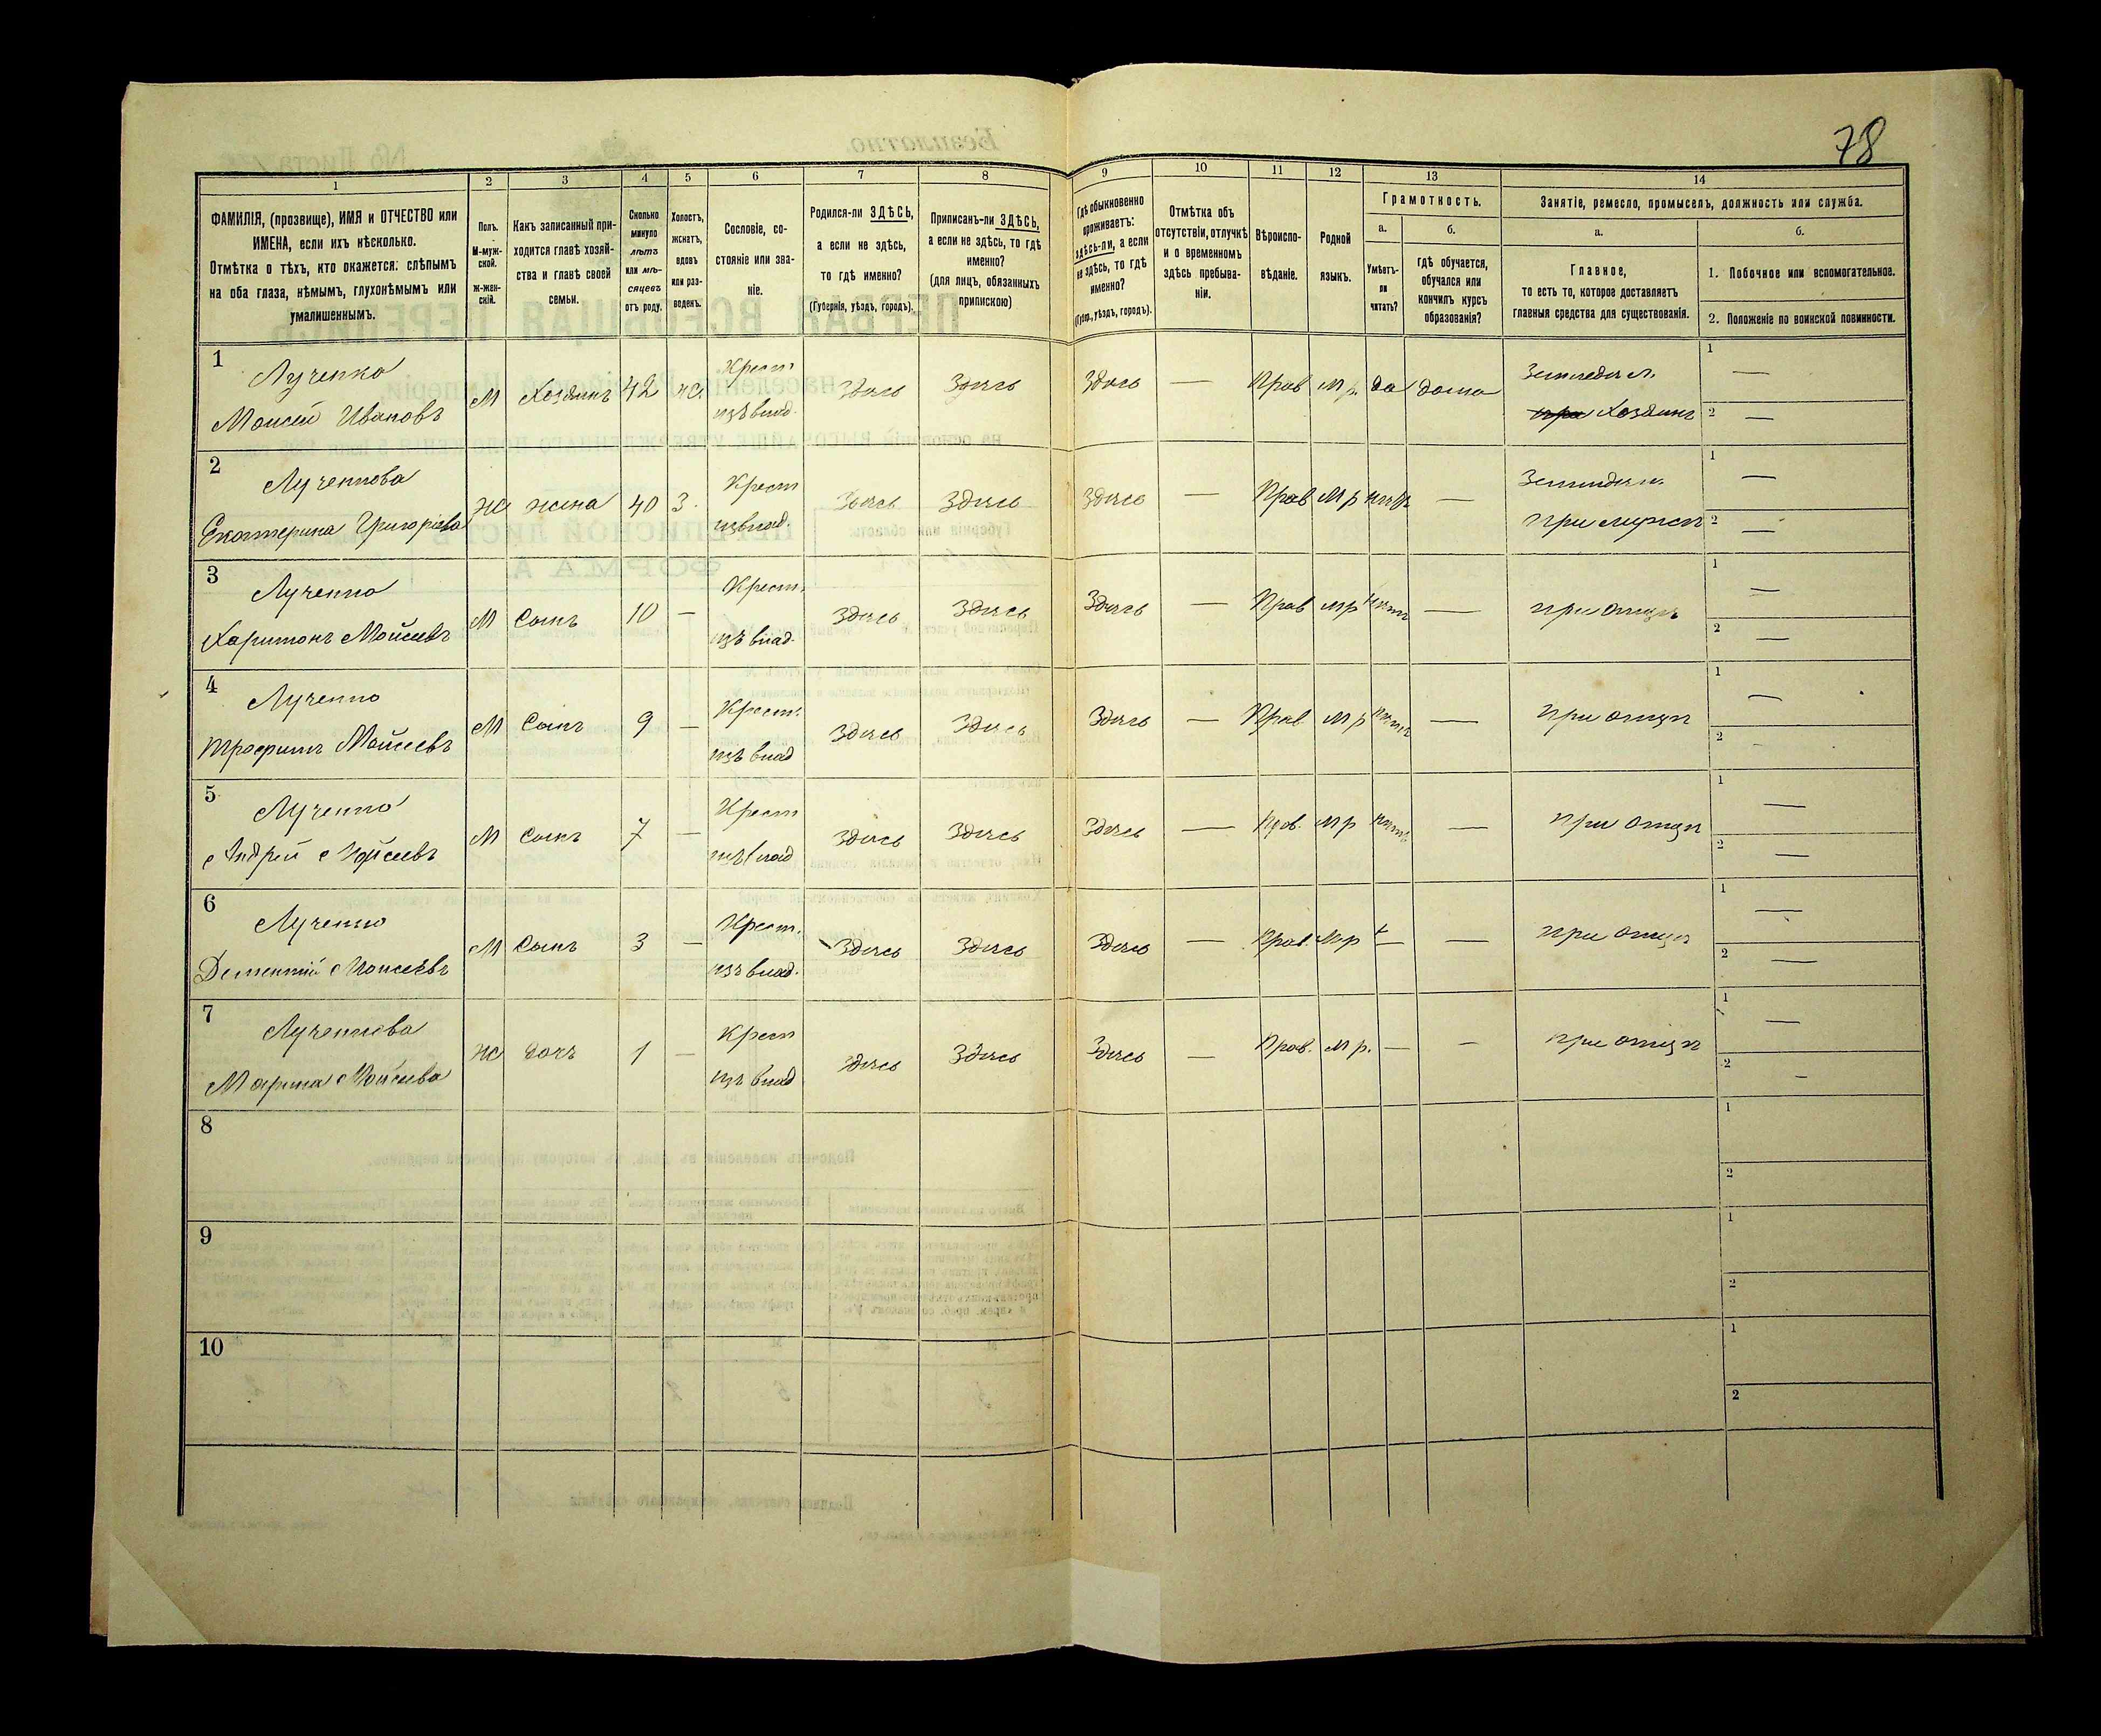 78
1
2
3
4
5
6
7
8
9
10
11
12
13
14
ФАМИЛІЯ, (прозвище), ИМЯ и ОТЧЕСТВО или
ИМЕНА, если ихъ нѣсколько.
Отмѣтка о тѣхъ, кто окажется: слѣпымъ
на оба глаза, нѣмымъ, глухонѣмымъ или
умалишеннымъ.
Полъ.
М-муж-
ской.
Ж-жен-
скій.
Какъ записанный при-
ходится главѣ хозяй-
ства и главѣ своей
семьи.
Сколько
минуло
лѣтъ
или мѣ-
сяцевъ
отъ роду.
Холостъ,
женатъ,
вдовъ
или раз-
веденъ.
Сословіе, со-
стояніе или зва-
ніе.
Родился-ли ЗДѢСЬ,
а если не здѣсь,
то гдѣ именно?
(Губернія, уѣздъ, городъ).
Приписанъ-ли ЗДѢСЬ,
а если не здѣсь, то гдѣ
именно?
(для лицъ, обязанныхъ
припискою)
Гдѣ обыкновенно
проживаетъ:
здѣсь-ли, а если
не здѣсь, то гдѣ
именно?
(Губер., уѣздъ, городъ).
Отмѣтка объ
отсутствіи, отлучкѣ
и о временномъ
здѣсь пребыва-
ніи.
Вѣроиспо-
вѣданіе.
Родной
языкъ.
Грамотность.
а.
б.
Умѣетъ-
ли
читать?
гдѣ обучается,
обучался или
кончилъ курсъ
образованія?
Занятіе, ремесло, промыселъ, должность или служба.
а.
б.
Главное,
то есть то, которое доставляетъ
главныя средства для существованія.
1. Побочное или вспомогательное.
2. Положеніе по воинской повинности.
1
Лученко
Моисей Ивановъ
М
Хозяинъ
42
ж.
Крест
изъ влад.
Здѣсь
Здѣсь
Здѣсь
—
Прав
м р.
да
дома
Земледѣл.
Хозяинъ
1 —
2 —
2
Лученкова
Екатерина Григорьева
Ж
жена
40
З.
Крест
изъ влад.
Здѣсь
Здѣсь
Здѣсь
—
Прав
М р
нѣтъ
—
Земледѣл.
при мужѣ
1 —
2 —
3
Лученко
Харитонъ Мойсеевъ
М
Сынъ
10
—
Крест.
изъ влад.
Здѣсь
Здѣсь
Здѣсь
—
Прав
мр
нѣтъ
—
при отцѣ
1 —
2 —
4
Лученко
Трофимъ Мойсеевъ
М
Сынъ
9
—
Крест.
изъ влад
Здѣсь
Здѣсь
Здѣсь
—
Прав.
м р
нѣтъ
—
при отцѣ
1 —
2 —
5
Лученко
Андрей Мойсеевъ
М
Сынъ
7
—
Крест
изъ влад
Здѣсь
Здѣсь
Здѣсь
—
Прав.
мр
нѣтъ
—
при отцѣ
1 —
2 —
6
Лученко
Дементій Моисеевъ
М
Сынъ
3
—
Крест.
изъ влад.
Здѣсь
Здѣсь
Здѣсь
—
Прав.
мр
—
—
при отцѣ
1 —
2 —
7
Лученкова
Марина Мойсеева
Ж
дочь
1
—
Крест
изъ влад
Здѣсь
Здѣсь
Здѣсь
—
Прав.
м р.
—
—
при отцѣ
1 —
2 —
8
1
2
9
1
2
10
1
2